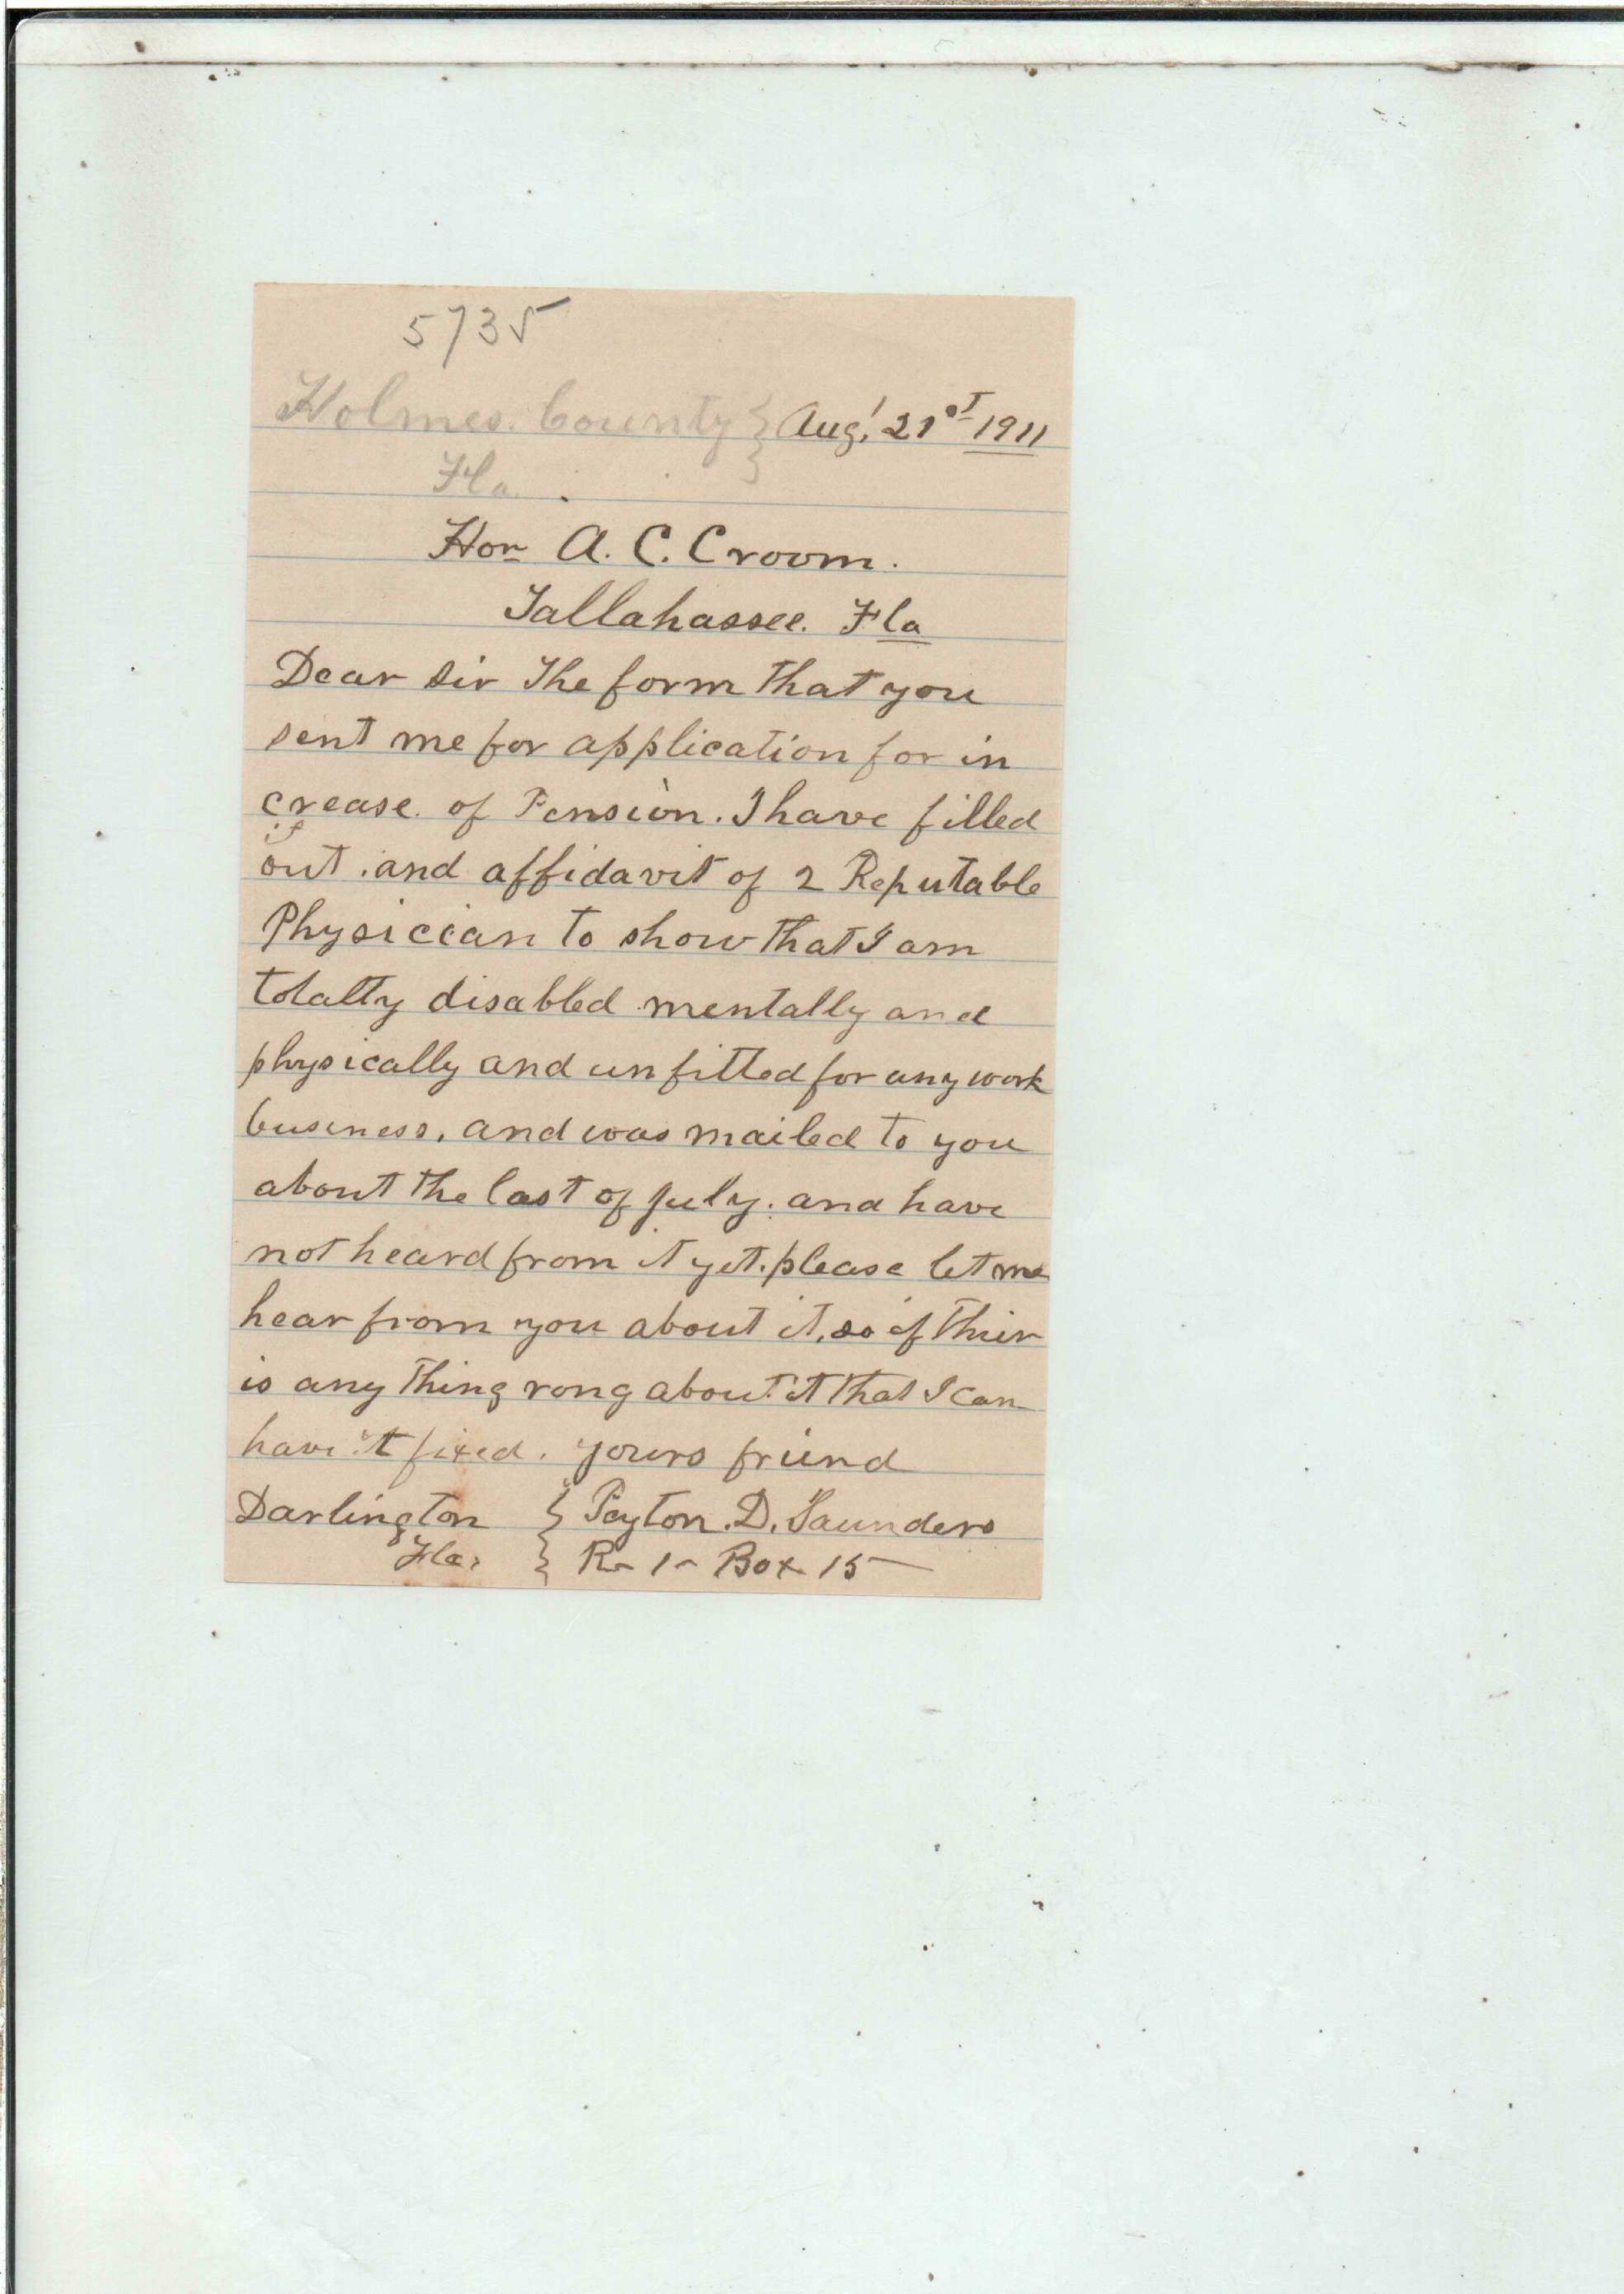 5735
Holmes. County } Aug! 21st 1911
Fla. }
Hon A. C. Croom.
Tallahassee. Fla
Dear sir The form that you
sent me for application for in
crease. of Pension. I have filled
it
out. and affidavit of 2 Reputable
Physician to show that I am
totally disabled mentally and
physically and unfitted for any work
business, and was mailed to you
about the last of july. and have
not heard from it yet. please let me
hear from you about it, so if thier
is any thing rong about it that I can
have it fixed. yours friend
Darlington } Peyton. D. Saunders
Fla, } R- 1- Box 15